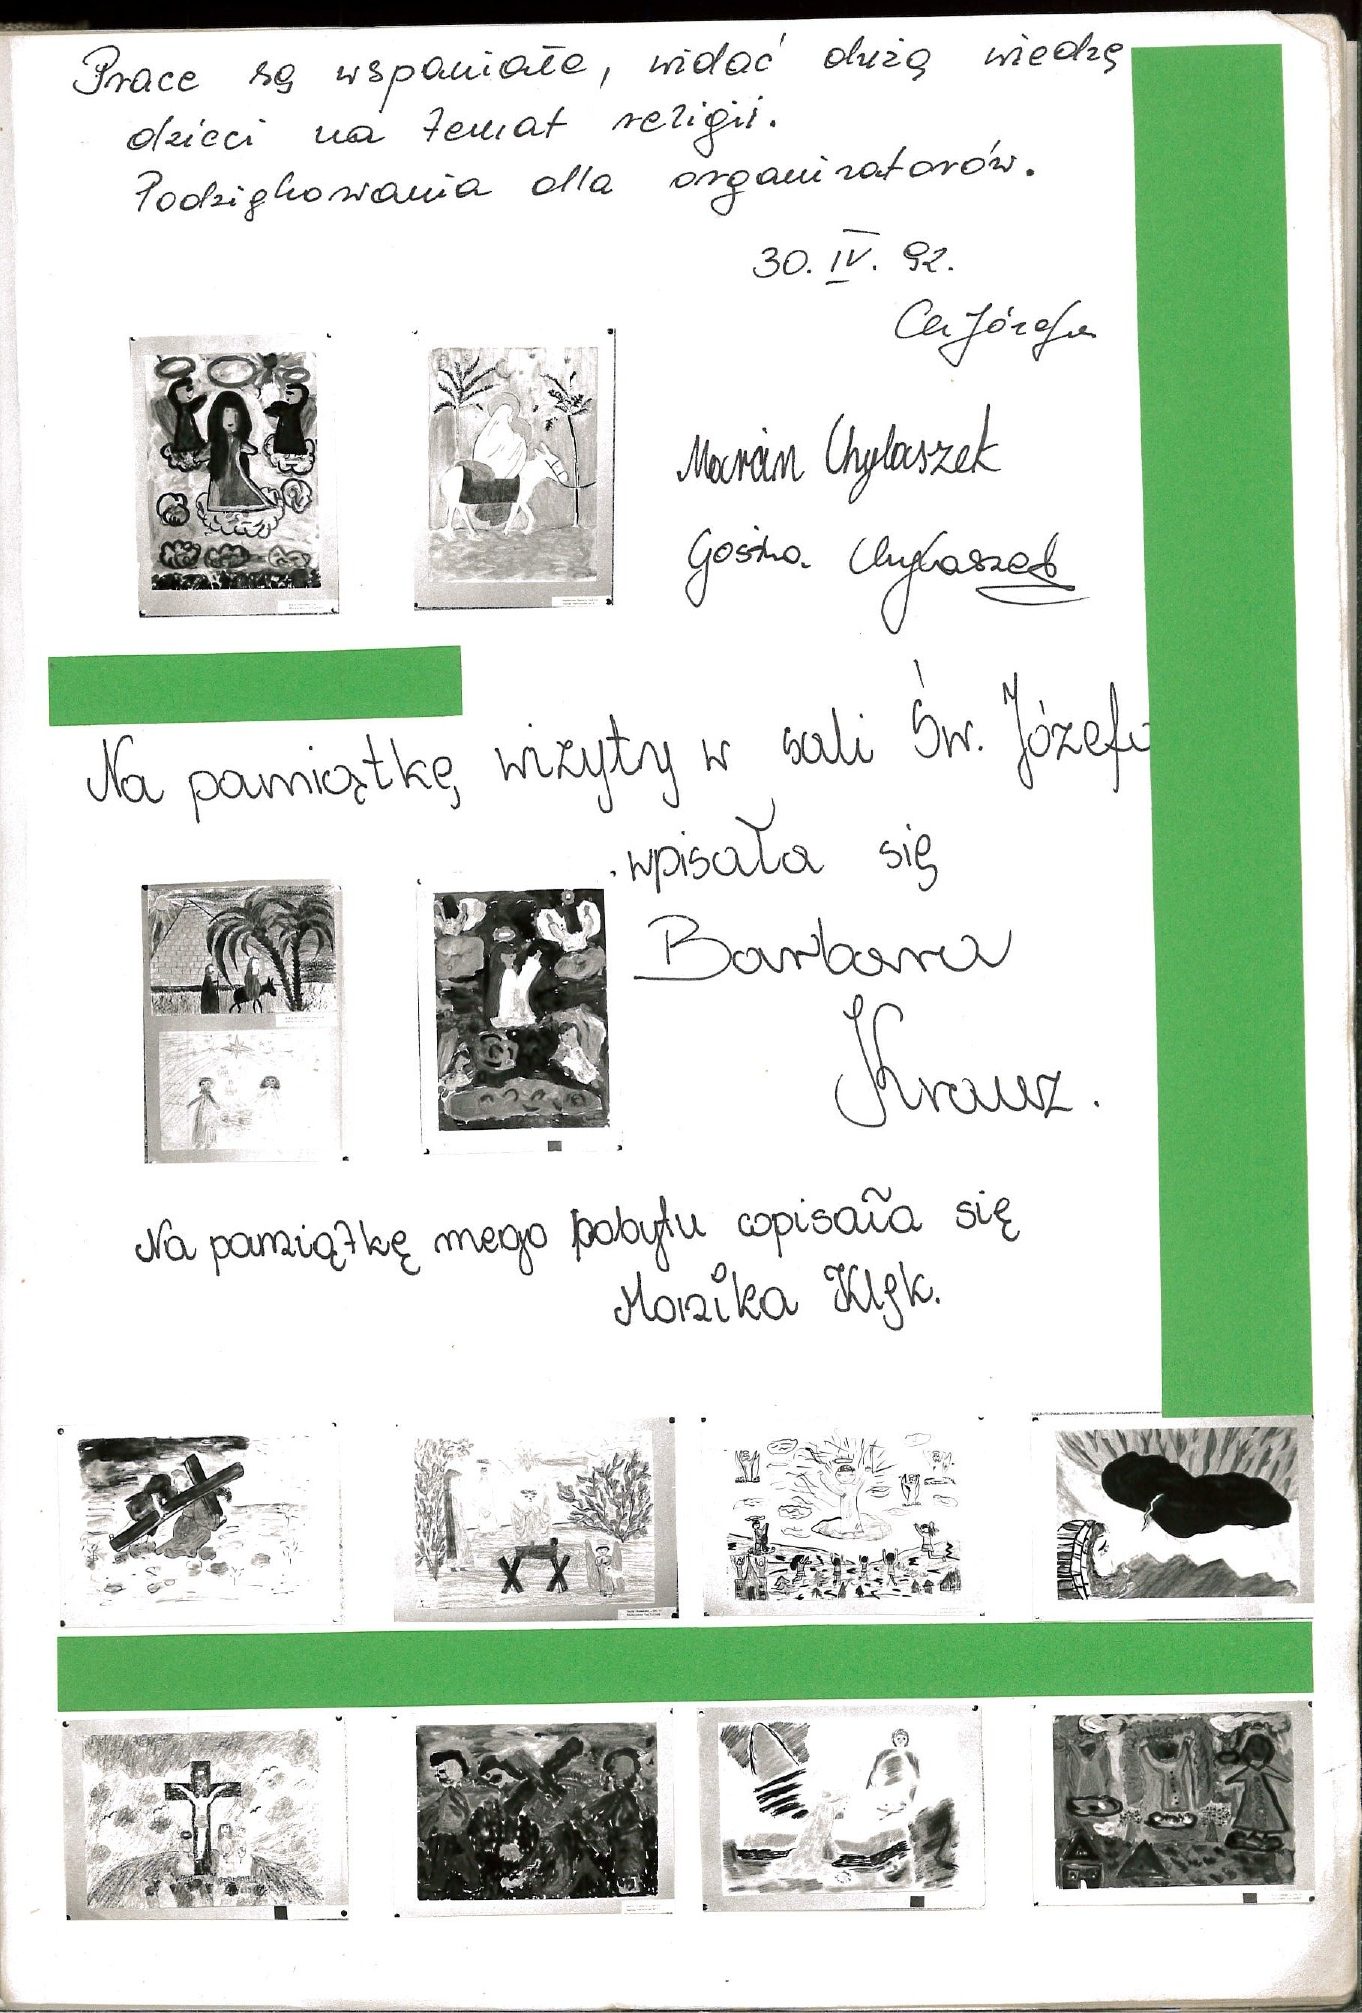 Prace są wspaniałe, widać dużą wiedzę
dzieci na temat religii.
Podziękowania dla organizatorów.
30. IV. 92.
Marcin Chylaszek
Gośka Chylaszek
Na pamiątkę wizyty w sali Św. Józefa
wpisała się
Barbara
Krausz.
Na pamiątkę mego pobytu wpisała się
Monika Kłęk.